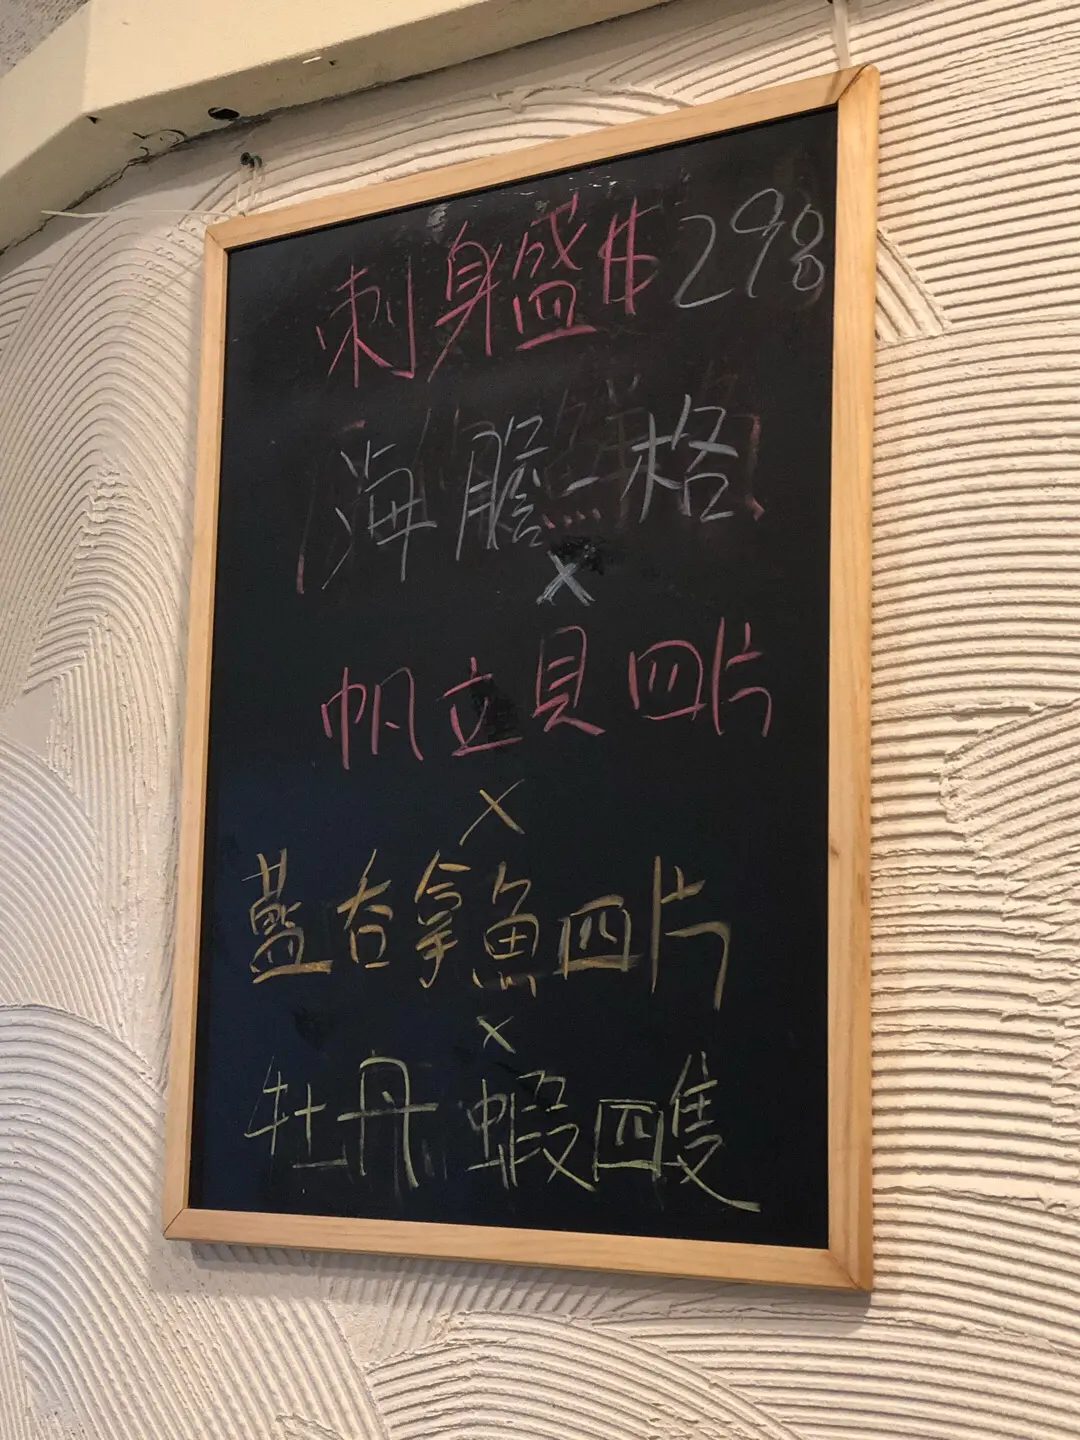 刺身盛$298
海膽一格
x
帆立貝四片
x
藍吞拿魚四片
x
牡丹蝦四隻